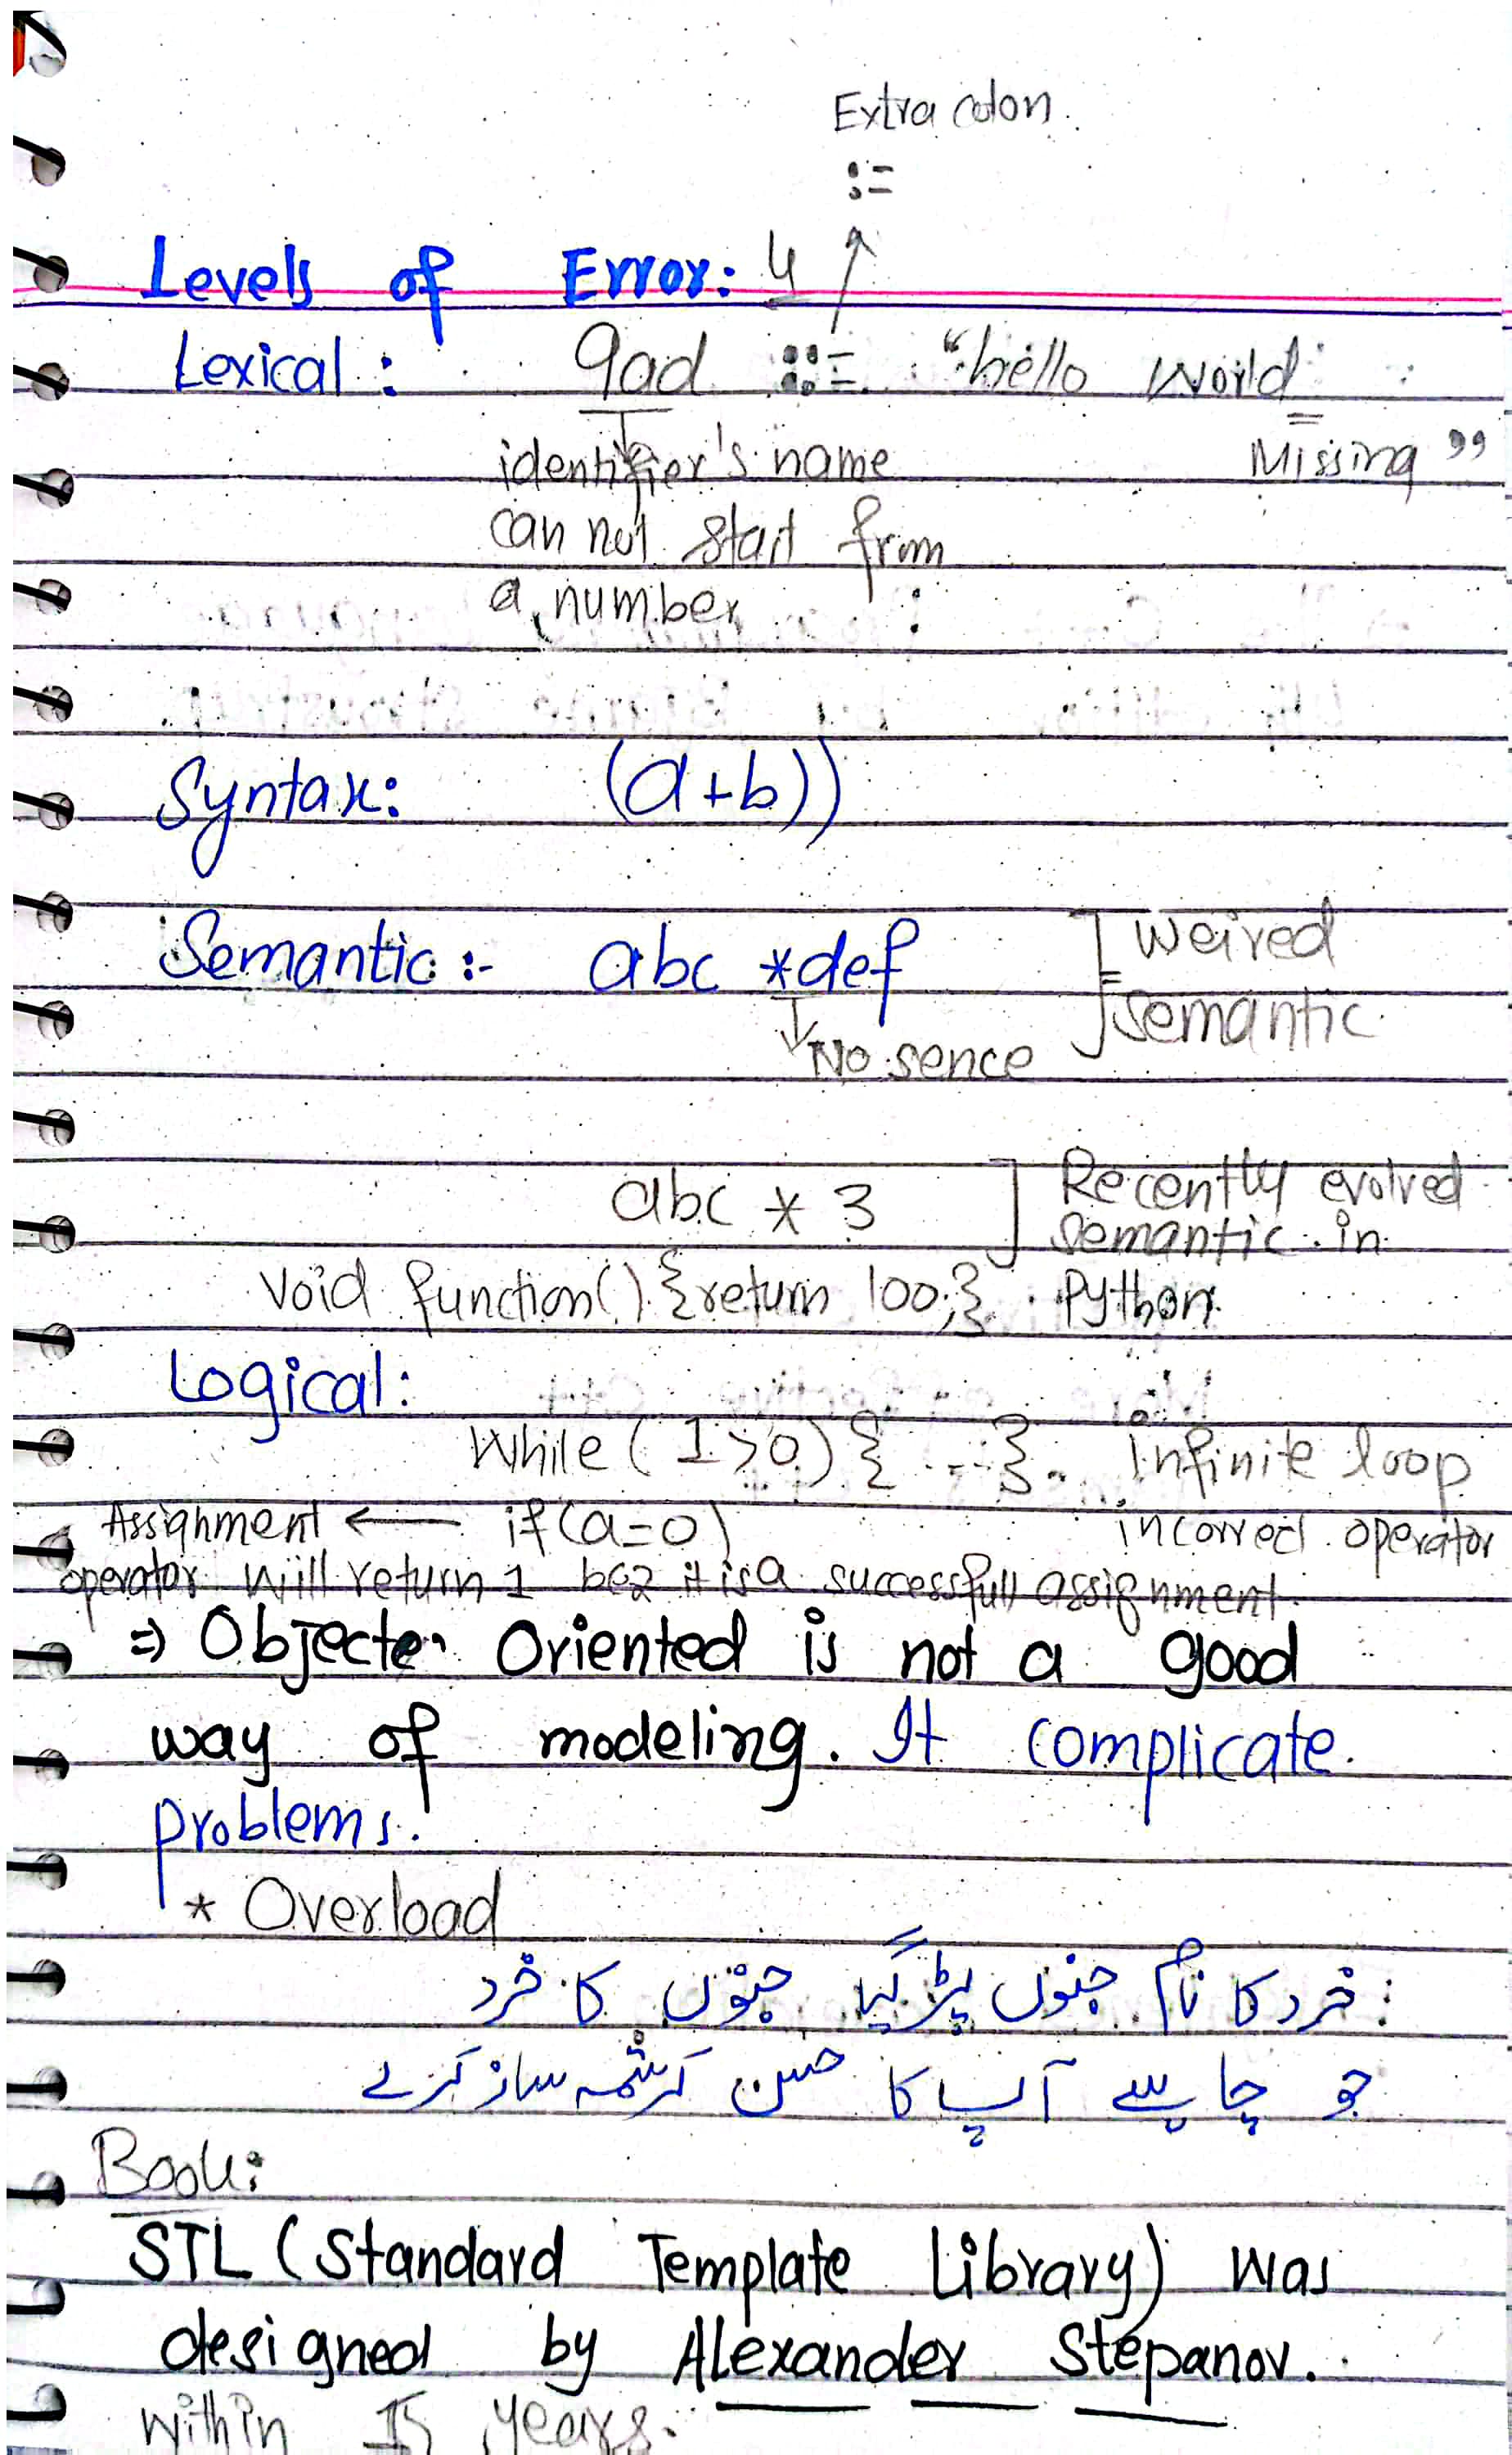 Extra colon.
:=
Levels of Error: 4
Lexical: 9ad ::= "hello world
identifier's name Missing "
can not start from
a number
Syntax: (a+b))
Semantic:- abc *def ] weired
semantic
No sence
abc * 3 ] Recently evolved
semantic in
void function() {return 100;} Python
Logical:
While (1>0) { ... } Infinite loop
Assignment ← if(a=0) incorrect operator
operator will return 1 bcz it is a successfull assignment.
⇒ Objecte Oriented is not a good
way of modeling. It complicate
problems.
* Overload
خرد کا نام جنوں پڑ گیا جنوں کا خرد :
جو چاہے آپ کا حسن کرشمہ ساز کرے
Book:
STL (Standard Template Library) was
designed by Alexander Stepanov.
within 15 years.